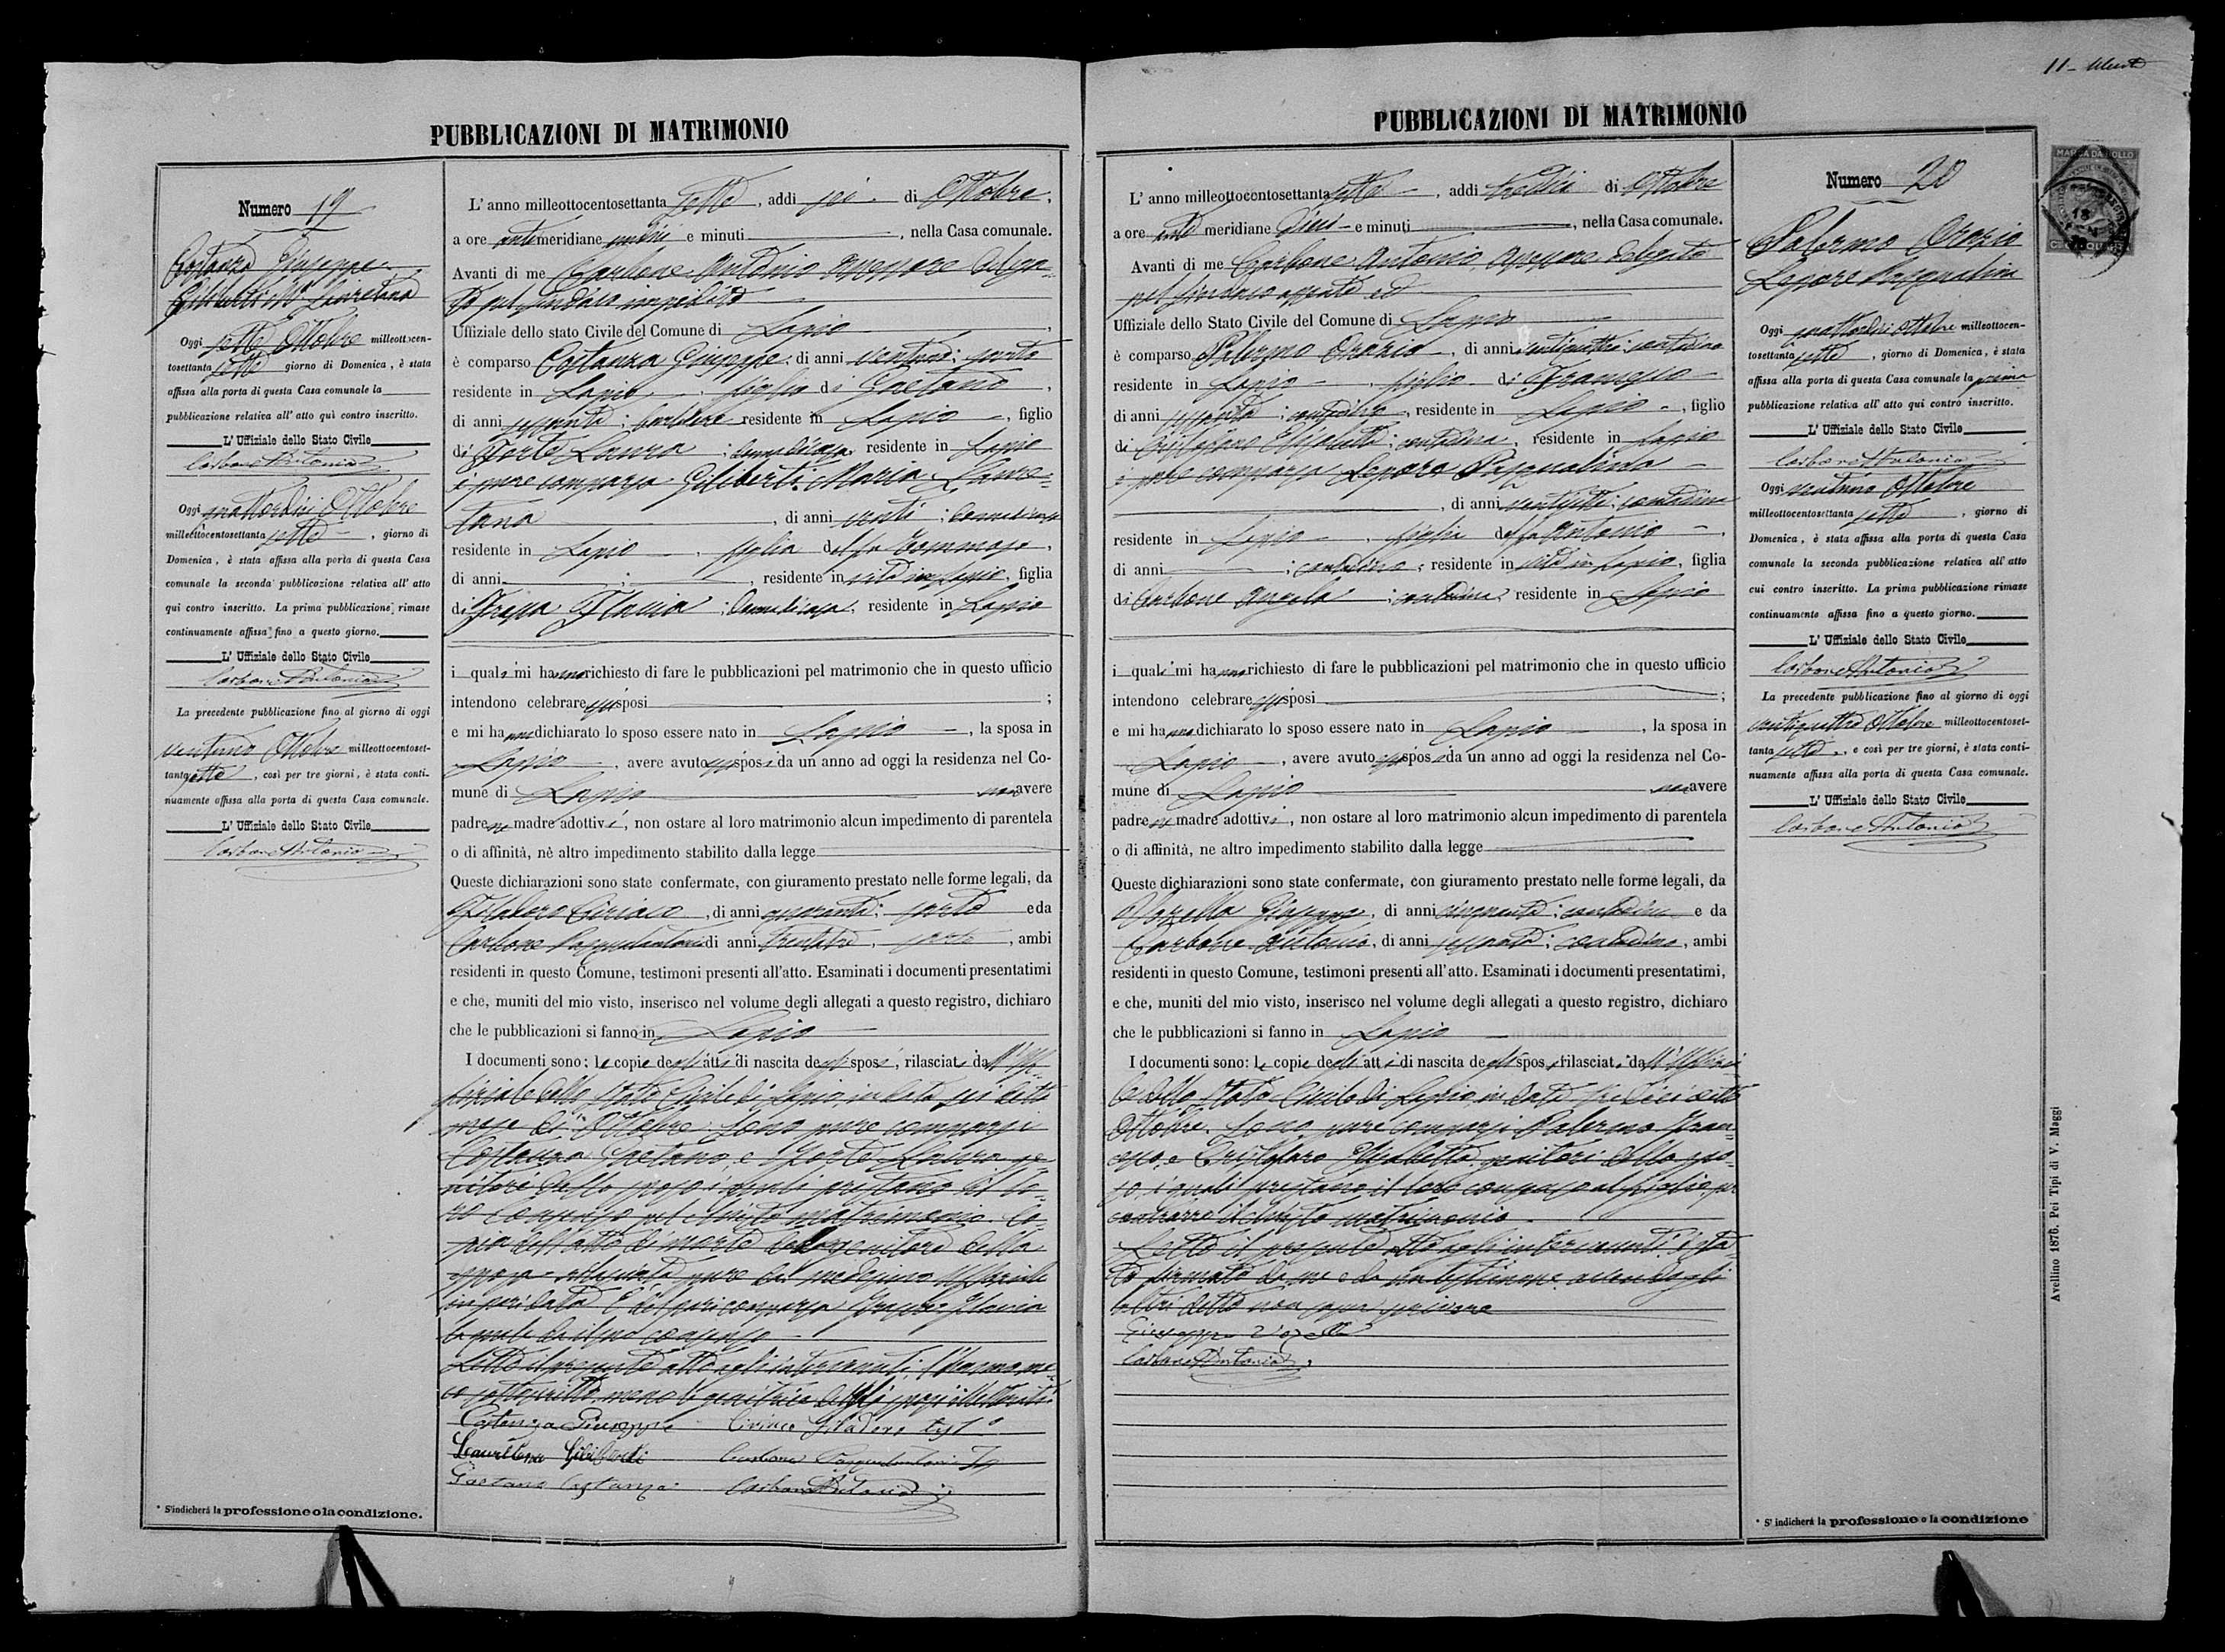 11
PUBBLICAZIONI DI MATRIMONIO
Numero 19
Costanza Giuseppe
Giliberti Mª Lauretana
Oggi sette Ottobre milleottocen-
tosettanta sette giorno di Domenica, è stata
affissa alla porta di questa Casa comunale la
pubblicazione relativa all' atto quì contro inscritto.
L' Uffiziale dello Stato Civile
Carbone Antonio
Oggi quattordici Ottobre
milleottocentosettanta sette, giorno di
Domenica, è stata affissa alla porta di questa Casa
comunale la seconda pubblicazione relativa all' atto
qui contro inscritto. La prima pubblicazione rimase
continuamente affissa fino a questo giorno.
L' Uffiziale dello Stato Civile
Carbone Antonio
La precedente pubblicazione fino al giorno di oggi
ventuno Ottobre milleottocentoset-
tanta sette, così per tre giorni, è stata conti-
nuamente affissa alla porta di questa Casa comunale.
L' Uffiziale dello Stato Civile
Carbone Antonio
* S'indicherà la professione o la condizione.
L' anno milleottocentosettanta sette, addi sei di Ottobre,
a ore antemeridiane undici e minuti , nella Casa comunale.
Avanti di me Carbone Antonio Assessore delega-
to pel sindaco impedito
Uffiziale dello stato Civile del Comune di Lapio
è comparso Costanza Giuseppe, di anni ; sarto
residente in Lapio, figlio di Gaetano,
di anni sessanta; residente in Lapio, figlio
di Forte Laura; donna di casa residente in Lapio
è pure comparsa Giliberti Maria Laure-
tana , di anni venti; donna di casa
residente in Lapio, figlia del fu Tommaso,
di anni ; , residente in vita in Lapio, figlia
di Flavia; donna di casa, residente in Lapio
i quali mi hanno richiesto di fare le pubblicazioni pel matrimonio che in questo ufficio
intendono celebrare gli sposi ;
e mi hanno dichiarato lo sposo essere nato in Lapio, la sposa in
Lapio, avere avuto gli sposi da un anno ad oggi la residenza nel Co-
mune di Lapio non avere
padre nè madre adottivi, non ostare al loro matrimonio alcun impedimento di parentela
o di affinità, nè altro impedimento stabilito dalla legge
Queste dichiarazioni sono state confermate, con giuramento prestato nelle forme legali, da
Ciriaco, di anni quaranta; sarto e da
Carbone Pasquantonio di anni trentatre, sarto, ambi
residenti in questo Comune, testimoni presenti all'atto. Esaminati i documenti presentatimi
e che, muniti del mio visto, inserisco nel volume degli allegati a questo registro, dichiaro
che le pubblicazioni si fanno in Lapio
I documenti sono: le copie degli atti di nascita degli sposi, rilasciate dall'Uf-
fiziale dello Stato Civile di Lapio in data sei detto
mese di Ottobre. Sono pure comparsi
Costanza Gaetano, e Forte Laura ge-
nitori dello sposo i quali prestano il lo-
ro consenso pel chiesto matrimonio. Co-
pia dell'atto di morte del genitore della
sposa rilasciata pure dal medesimo Uffiziale
in pari data. È del pari comparsa Flavia
la quale dà il suo consenso
Letto il presente atto agli intervenuti, l'hanno me-
co sottoscritto meno le genitrici degli sposi
Costanza Giuseppe Ciriaco test°
Lauretana Giliberti Carbone Pasquantonio
Gaetano Costanza Carbone Antonio
PUBBLICAZIONI DI MATRIMONIO
L' anno milleottocentosettanta sette, addi tredici di Ottobre
a ore ante meridiane dieci e minuti , nella Casa comunale.
Avanti di me Carbone Antonio, Assessore delegato
pel sindaco assente ed
Uffiziale dello Stato Civile del Comune di Lapio
è comparso Palermo Orazio, di anni ventiquattro; contadino
residente in Lapio, figlio di Francesco
di anni sessanta; contadino, residente in Lapio, figlio
di Cristofaro Elisabetta; contadina, residente in Lapio
è pure comparsa Lepore Pasqualina
, di anni ventisette; contadina
residente in Lapio, figlia del fu Antonio,
di anni ; contadino, residente in vita in Lapio, figlia
di Carbone Angela; contadina, residente in Lapio
i quali mi hanno richiesto di fare le pubblicazioni pel matrimonio che in questo ufficio
intendono celebrare gli sposi ;
e mi hanno dichiarato lo sposo essere nato in Lapio, la sposa in
Lapio, avere avuto gli sposi da un anno ad oggi la residenza nel Co-
mune di Lapio non avere
padre nè madre adottivi, non ostare al loro matrimonio alcun impedimento di parentela
o di affinità, ne altro impedimento stabilito dalla legge
Queste dichiarazioni sono state confermate, con giuramento prestato nelle forme legali, da
Giuseppe, di anni cinquanta; contadino e da
Carbone Antonio, di anni sessanta; contadino, ambi
residenti in questo Comune, testimoni presenti all'atto. Esaminati i documenti presentatimi,
e che, muniti del mio visto, inserisco nel volume degli allegati a questo registro, dichiaro
che le pubblicazioni si fanno in Lapio
I documenti sono: le copie degli atti di nascita degli sposi rilasciate dall'Uffizia-
le dello Stato Civile di Lapio in data tredici detto
Ottobre. Sono pure comparsi Palermo Fran-
cesco, e Cristofaro Elisabetta genitori dello spo-
so, i quali prestano il loro consenso al figlio per
contrarre il chiesto matrimonio
Letto il presente atto agli intervenuti è sta-
to firmato da me e da un testimone avendo gli
altri detto non saper scrivere
Giuseppe
Carbone Antonio
Numero 20
Palermo Orazio
Lepore Pasqualina
Oggi quattordici Ottobre milleottocen-
tosettanta sette, giorno di Domenica, è stata
affissa alla porta di questa Casa comunale la prima
pubblicazione relativa all' atto qui contro inscritto.
L' Uffiziale dello Stato Civile
Carbone Antonio
Oggi ventuno Ottobre
milleottocentosettanta sette, giorno di
Domenica, è stata affissa alla porta di questa Casa
comunale la seconda pubblicazione relativa all' atto
cui contro inscritto. La prima pubblicazione rimase
continuamente affissa fino a questo giorno.
L' Uffiziale dello Stato Civile
Carbone Antonio
La precedente pubblicazione fino al giorno di oggi
ventiquattro Ottobre milleottocentoset-
tanta sette, e così per tre giorni, è stata conti-
nuamente affissa alla porta di questa Casa comunale.
L' Uffiziale dello Stato Civile
Carbone Antonio
* S' indicherà la professione o la condizione
MARCA DA BOLLO
Avellino 1876. Pei Tipi di V. Maggi